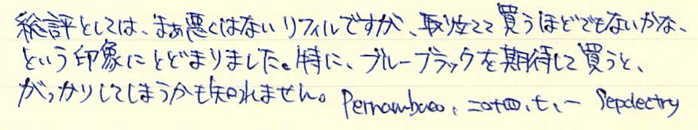 総評としては、まぁ悪くはないリフィルですが、取り立てて買うほどでもないかな、
という印象にとどまりました。特に、ブルーブラックを期待して買うと、
がっかりしてしまうかも知れません。Pernambuco,